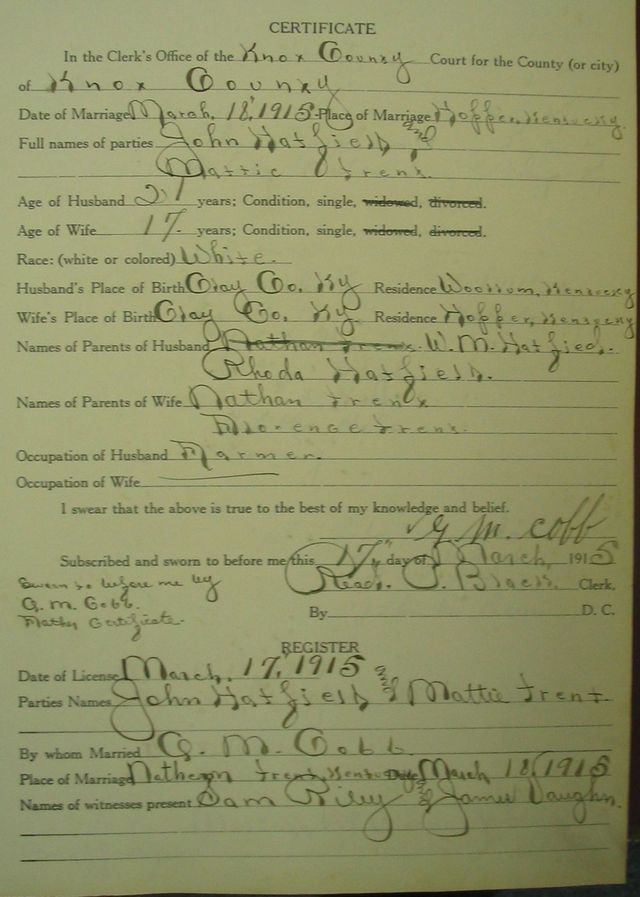 CERTIFICATE
In the Clerk's Office of the Knox County Court for the County (or city)
of Knox County
Date of Marriage March, 18, 1915 Place of Marriage Hopper, Kentucky.
Full names of parties John Hatfield and
Mattie Trent.
Age of Husband 21 years; Condition, single, widowed, divorced.
Age of Wife 17 years; Condition, single, widowed, divorced.
Race: (white or colored) White.
Husband's Place of Birth Clay Co. Ky Residence Woollum, Kentucky
Wife's Place of Birth Clay Co. Ky. Residence Hopper, Kentucky
Names of Parents of Husband Nathan Trent. W. M. Hatfied.
Rhoda Hatfield.
Names of Parents of Wife Nathan Trent
Florence Trent.
Occupation of Husband Farmer.
Occupation of Wife
I swear that the above is true to the best of my knowledge and belief.
G. M. Cobb
Subscribed and sworn to before me this 17, day of March, 1915
Read. P. Black. Clerk.
Sworn to before me by
G. M. Cobb.
Certificate.
By D. C.
REGISTER
Date of License March, 17, 1915
Parties Names John Hatfield and Mattie Trent
By whom Married G. M. Cobb.
Place of Marriage Trent, Kentucky Date March, 18, 1915
Names of witnesses present Sam Riley and James Vaughn.